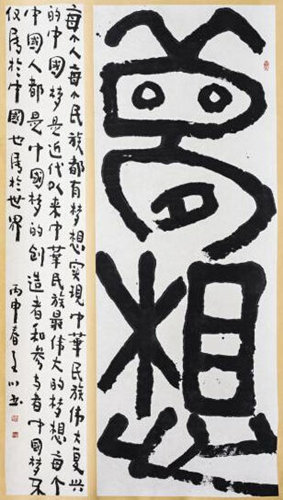 夢想
每个人每个民族都有梦想实现中華民族伟大复兴
的中國梦是近代以来中華民族最伟大的梦想每个
中國人都是中國梦的创造者和参与者中國梦不
仅属於中國也属於世界
丙申春